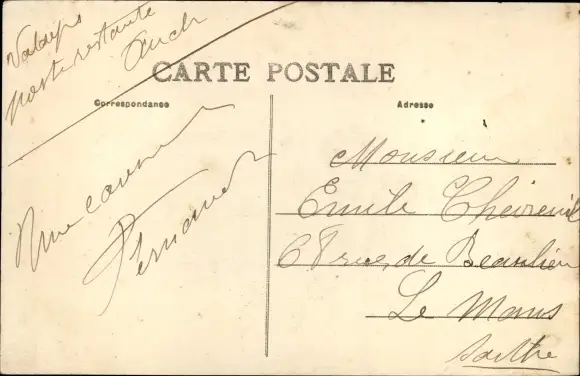 Valdeps
poste restante
Auch
CARTE POSTALE
Correspondance
Adresse
Une
Fernand
Monsieur
Emile Chevreuil
68 rue de Beaulieu
Le Mans
Sarthe